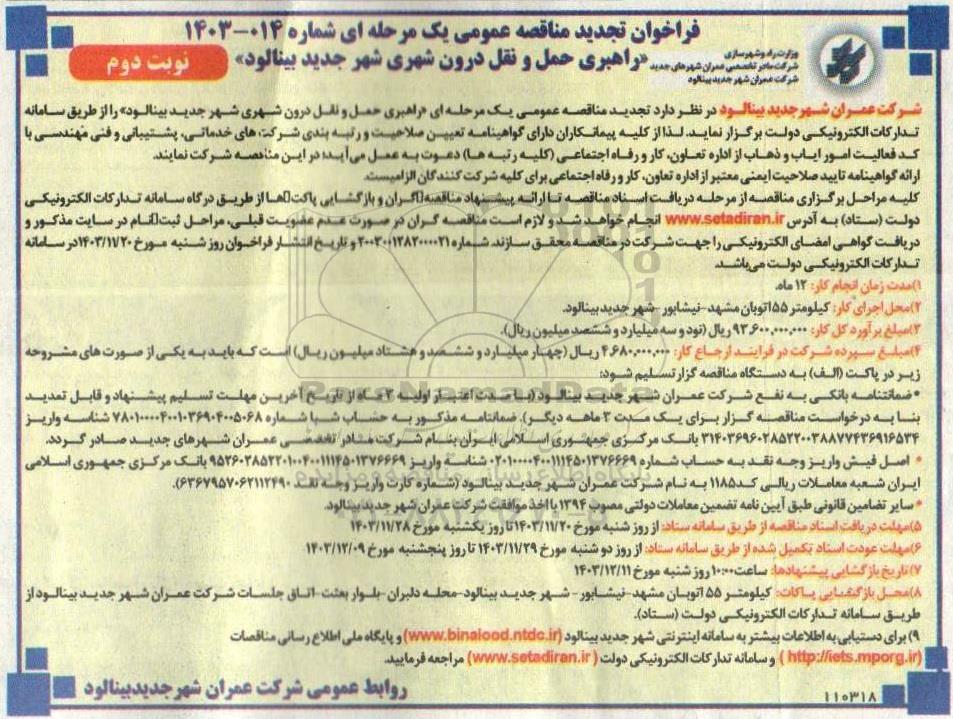 فراخوان تجدید مناقصه عمومی یک مرحله ای شماره ۰۱۴-۱۴۰۳
«راهبری حمل و نقل درون شهری شهر جدید بینالود»
نوبت دوم
وزارت راه و شهرسازی
شرکت مادر تخصصی عمران شهرهای جدید
شرکت عمران شهر جدید بینالود
شرکت عمران شهر جدید بینالود در نظر دارد تجدید مناقصه عمومی یک مرحله ای «راهبری حمل و نقل درون شهری شهر جدید بینالود» را از طریق سامانه
تدارکات الکترونیکی دولت برگزار نماید. لذا از کلیه پیمانکاران دارای گواهینامه تعیین صلاحیت و رتبه بندی شرکت های خدماتی، پشتیبانی و فنی مهندسی با
کد فعالیت امور ایاب و ذهاب از اداره تعاون، کار و رفاه اجتماعی (کلیه رتبه ها) دعوت به عمل می‌آید؛ در این مناقصه شرکت نمایند.
ارائه گواهینامه تایید صلاحیت ایمنی معتبر از اداره تعاون، کار و رفاه اجتماعی برای کلیه شرکت کنندگان الزامیست.
کلیه مراحل برگزاری مناقصه از مرحله دریافت اسناد مناقصه تا ارائه پیشنهاد مناقصه‌گران و بازگشایی پاکت‌ها از طریق درگاه سامانه تدارکات الکترونیکی
دولت (ستاد) به آدرس www.setadiran.ir انجام خواهد شد و لازم است مناقصه گران در صورت عدم عضویت قبلی، مراحل ثبت‌نام در سایت مذکور و
دریافت گواهی امضای الکترونیکی را جهت شرکت در مناقصه محقق سازند. شماره ۲۰۰۳۰۰۱۲۸۲۰۰۰۰۲۱ و تاریخ انتشار فراخوان روز شنبه مورخ ۱۴۰۳/۱۱/۲۰ در سامانه
تدارکات الکترونیکی دولت می‌باشد.
۱) مدت زمان انجام کار: ۱۲ ماه.
۲) محل اجرای کار: کیلومتر ۵۵ اتوبان مشهد-نیشابور -شهر جدید بینالود.
۳) مبلغ برآورد کل کار: ۹۳,۶۰۰,۰۰۰,۰۰۰ ریال (نود و سه میلیارد و ششصد میلیون ریال).
۴) مبلغ سپرده شرکت در فرایند ارجاع کار: ۴,۶۸۰,۰۰۰,۰۰۰ ریال (چهار میلیارد و ششصد و هشتاد میلیون ریال) است که باید به یکی از صورت های مشروحه
زیر در پاکت (الف) به دستگاه مناقصه گزار تسلیم شود:
*ضمانتنامه بانکی به نفع شرکت عمران شهر جدید بینالود (با مدت اعتبار اولیه ۳ ماه از تاریخ آخرین مهلت تسلیم پیشنهاد و قابل تمدید
بنا به درخواست مناقصه گزار برای یک مدت ۳ ماهه دیگر). ضمانتنامه مذکور به حساب شبا شماره شناسه واریز
بانک مرکزی جمهوری اسلامی ایران بنام شرکت مادر تخصصی عمران شهرهای جدید صادر گردد.
* اصل فیش واریز وجه نقد به حساب شماره شناسه واریز بانک مرکزی جمهوری اسلامی
ایران شعبه معاملات ریالی کد ۱۱۸۵ به نام شرکت عمران شهر جدید بینالود (شماره کارت واریز وجه نقد ۶۳۶۷۹۵۷۰۶۲۱۱۲۴۹۰).
*سایر تضامین قانونی طبق آیین نامه تضمین معاملات دولتی مصوب ۱۳۹۴ با اخذ موافقت شرکت عمران شهر جدید بینالود.
۵) مهلت دریافت اسناد مناقصه از طریق سامانه ستاد: از روز شنبه مورخ ۱۴۰۳/۱۱/۲۰ تا روز یکشنبه مورخ ۱۴۰۳/۱۱/۲۸
۶) مهلت عودت اسناد تکمیل شده از طریق سامانه ستاد: از روز دو شنبه مورخ ۱۴۰۳/۱۱/۲۹ تا روز پنجشنبه مورخ ۱۴۰۳/۱۲/۰۹
۷) تاریخ بازگشایی پیشنهادها: ساعت ۱۰:۰۰ روز شنبه مورخ ۱۴۰۳/۱۲/۱۱
۸) محل بازگشایی پاکات: کیلومتر ۵۵ اتوبان مشهد-نیشابور- شهر جدید بینالود-محله دلبران -بلوار بعثت-اتاق جلسات شرکت عمران شهر جدید بینالود از
طریق سامانه تدارکات الکترونیکی دولت (ستاد).
۹) برای دستیابی به اطلاعات بیشتر به سامانه اینترنتی شهر جدید بینالود (www.binalood.ntdc.ir) و پایگاه ملی اطلاع رسانی مناقصات
(http://iets.mporg.ir) و سامانه تدارکات الکترونیکی دولت (www.setadiran.ir) مراجعه فرمایید.
روابط عمومی شرکت عمران شهر جدید بینالود
۱۱۰۳۱۸
ParsNamadData